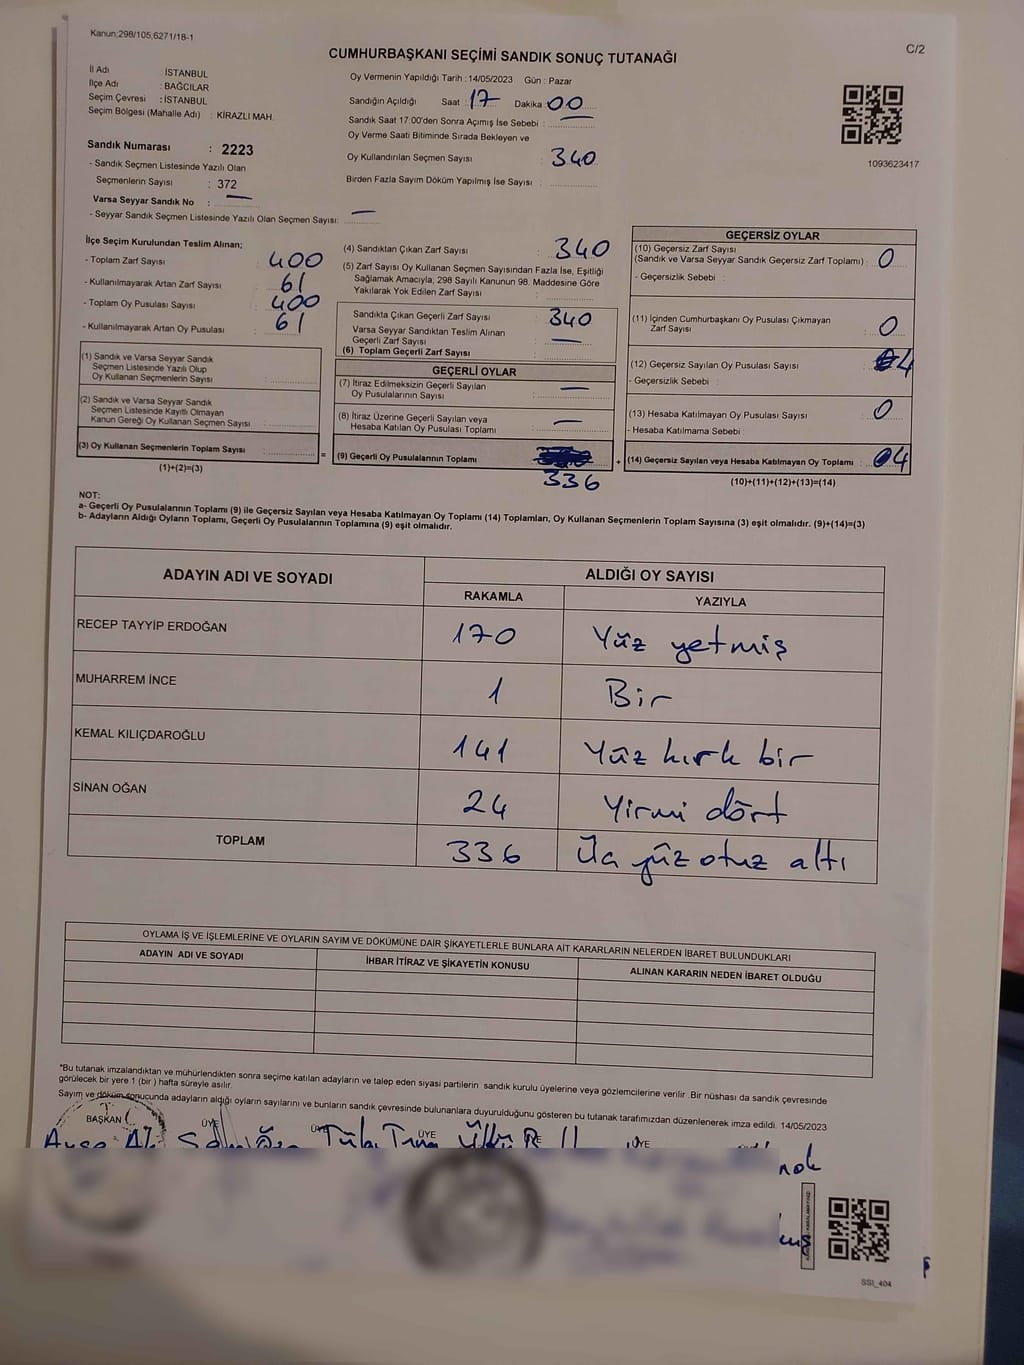 Kanun;298/105,6271/18-1
C/2
CUMHURBAŞKANI SEÇİMİ SANDIK SONUÇ TUTANAĞI
İl Adı : İSTANBUL
İlçe Adı : BAĞCILAR
Seçim Çevresi : İSTANBUL
Seçim Bölgesi (Mahalle Adı) : KİRAZLI MAH.
Sandık Numarası : 2223
- Sandık Seçmen Listesinde Yazılı Olan
Seçmenlerin Sayısı : 372
Varsa Seyyar Sandık No : —
- Seyyar Sandık Seçmen Listesinde Yazılı Olan Seçmen Sayısı: —
Oy Vermenin Yapıldığı Tarih : 14/05/2023 Gün : Pazar
Sandığın Açıldığı Saat : 17 Dakika : 00
Sandık Saat 17:00'den Sonra Açımış İse Sebebi : —
Oy Verme Saati Bitiminde Sırada Bekleyen ve
Oy Kullandırılan Seçmen Sayısı : 340
Birden Fazla Sayım Döküm Yapılmış İse Sayısı :
1093623417
İlçe Seçim Kurulundan Teslim Alınan;
- Toplam Zarf Sayısı : 400
- Kullanılmayarak Artan Zarf Sayısı : 61
- Toplam Oy Pusulası Sayısı : 400
- Kullanılmayarak Artan Oy Pusulası : 61
(1) Sandık ve Varsa Seyyar Sandık
Seçmen Listesinde Yazılı Olup
Oy Kullanan Seçmenlerin Sayısı :
(2) Sandık ve Varsa Seyyar Sandık
Seçmen Listesinde Kayıtlı Olmayan
Kanun Gereği Oy Kullanan Seçmen Sayısı :
(3) Oy Kullanan Seçmenlerin Toplam Sayısı :
(1)+(2)=(3)
(4) Sandıktan Çıkan Zarf Sayısı : 340
(5) Zarf Sayısı Oy Kullanan Seçmen Sayısından Fazla İse, Eşitliği
Sağlamak Amacıyla, 298 Sayılı Kanunun 98. Maddesine Göre
Yakılarak Yok Edilen Zarf Sayısı :
Sandıkta Çıkan Geçerli Zarf Sayısı : 340
Varsa Seyyar Sandıktan Teslim Alınan
Geçerli Zarf Sayısı : —
(6) Toplam Geçerli Zarf Sayısı :
GEÇERLİ OYLAR
(7) İtiraz Edilmeksizin Geçerli Sayılan
Oy Pusulalarının Sayısı : —
(8) İtiraz Üzerine Geçerli Sayılan veya
Hesaba Katılan Oy Pusulası Toplamı : —
= (9) Geçerli Oy Pusulalarının Toplamı :
336
GEÇERSİZ OYLAR
(10) Geçersiz Zarf Sayısı
(Sandık ve Varsa Seyyar Sandık Geçersiz Zarf Toplamı) : 0
- Geçersizlik Sebebi :
(11) İçinden Cumhurbaşkanı Oy Pusulası Çıkmayan
Zarf Sayısı : 0
(12) Geçersiz Sayılan Oy Pusulası Sayısı : 4
- Geçersizlik Sebebi :
(13) Hesaba Katılmayan Oy Pusulası Sayısı : 0
- Hesaba Katılmama Sebebi :
+ (14) Geçersiz Sayılan veya Hesaba Katılmayan Oy Toplamı : 4
(10)+(11)+(12)+(13)=(14)
NOT:
a- Geçerli Oy Pusulalarının Toplamı (9) ile Geçersiz Sayılan veya Hesaba Katılmayan Oy Toplamı (14) Toplamları, Oy Kullanan Seçmenlerin Toplam Sayısına (3) eşit olmalıdır. (9)+(14)=(3)
b- Adayların Aldığı Oyların Toplamı, Geçerli Oy Pusulalarının Toplamına (9) eşit olmalıdır.
ADAYIN ADI VE SOYADI ALDIĞI OY SAYISI
RAKAMLA YAZIYLA
RECEP TAYYİP ERDOĞAN 170 Yüz yetmiş
MUHARREM İNCE 1 Bir
KEMAL KILIÇDAROĞLU 141 Yüz kırk bir
SİNAN OĞAN 24 Yirmi dört
TOPLAM 336 Üç yüz otuz altı
OYLAMA İŞ VE İŞLEMLERİNE VE OYLARIN SAYIM VE DÖKÜMÜNE DAİR ŞİKAYETLERLE BUNLARA AİT KARARLARIN NELERDEN İBARET BULUNDUKLARI
ADAYIN ADI VE SOYADI İHBAR İTİRAZ VE ŞİKAYETİN KONUSU ALINAN KARARIN NEDEN İBARET OLDUĞU
*Bu tutanak imzalandıktan ve mühürlendikten sonra seçime katılan adayların ve talep eden siyasi partilerin sandık kurulu üyelerine veya gözlemcilerine verilir .Bir nüshası da sandık çevresinde
görülecek bir yere 1 (bir ) hafta süreyle asılır.
Sayım ve döküm sonucunda adayların aldığı oyların sayılarını ve bunların sandık çevresinde bulunanlara duyurulduğunu gösteren bu tutanak tarafımızdan düzenlenerek imza edildi. 14/05/2023
BAŞKAN ÜYE ÜYE ÜYE ÜYE
SSI_404